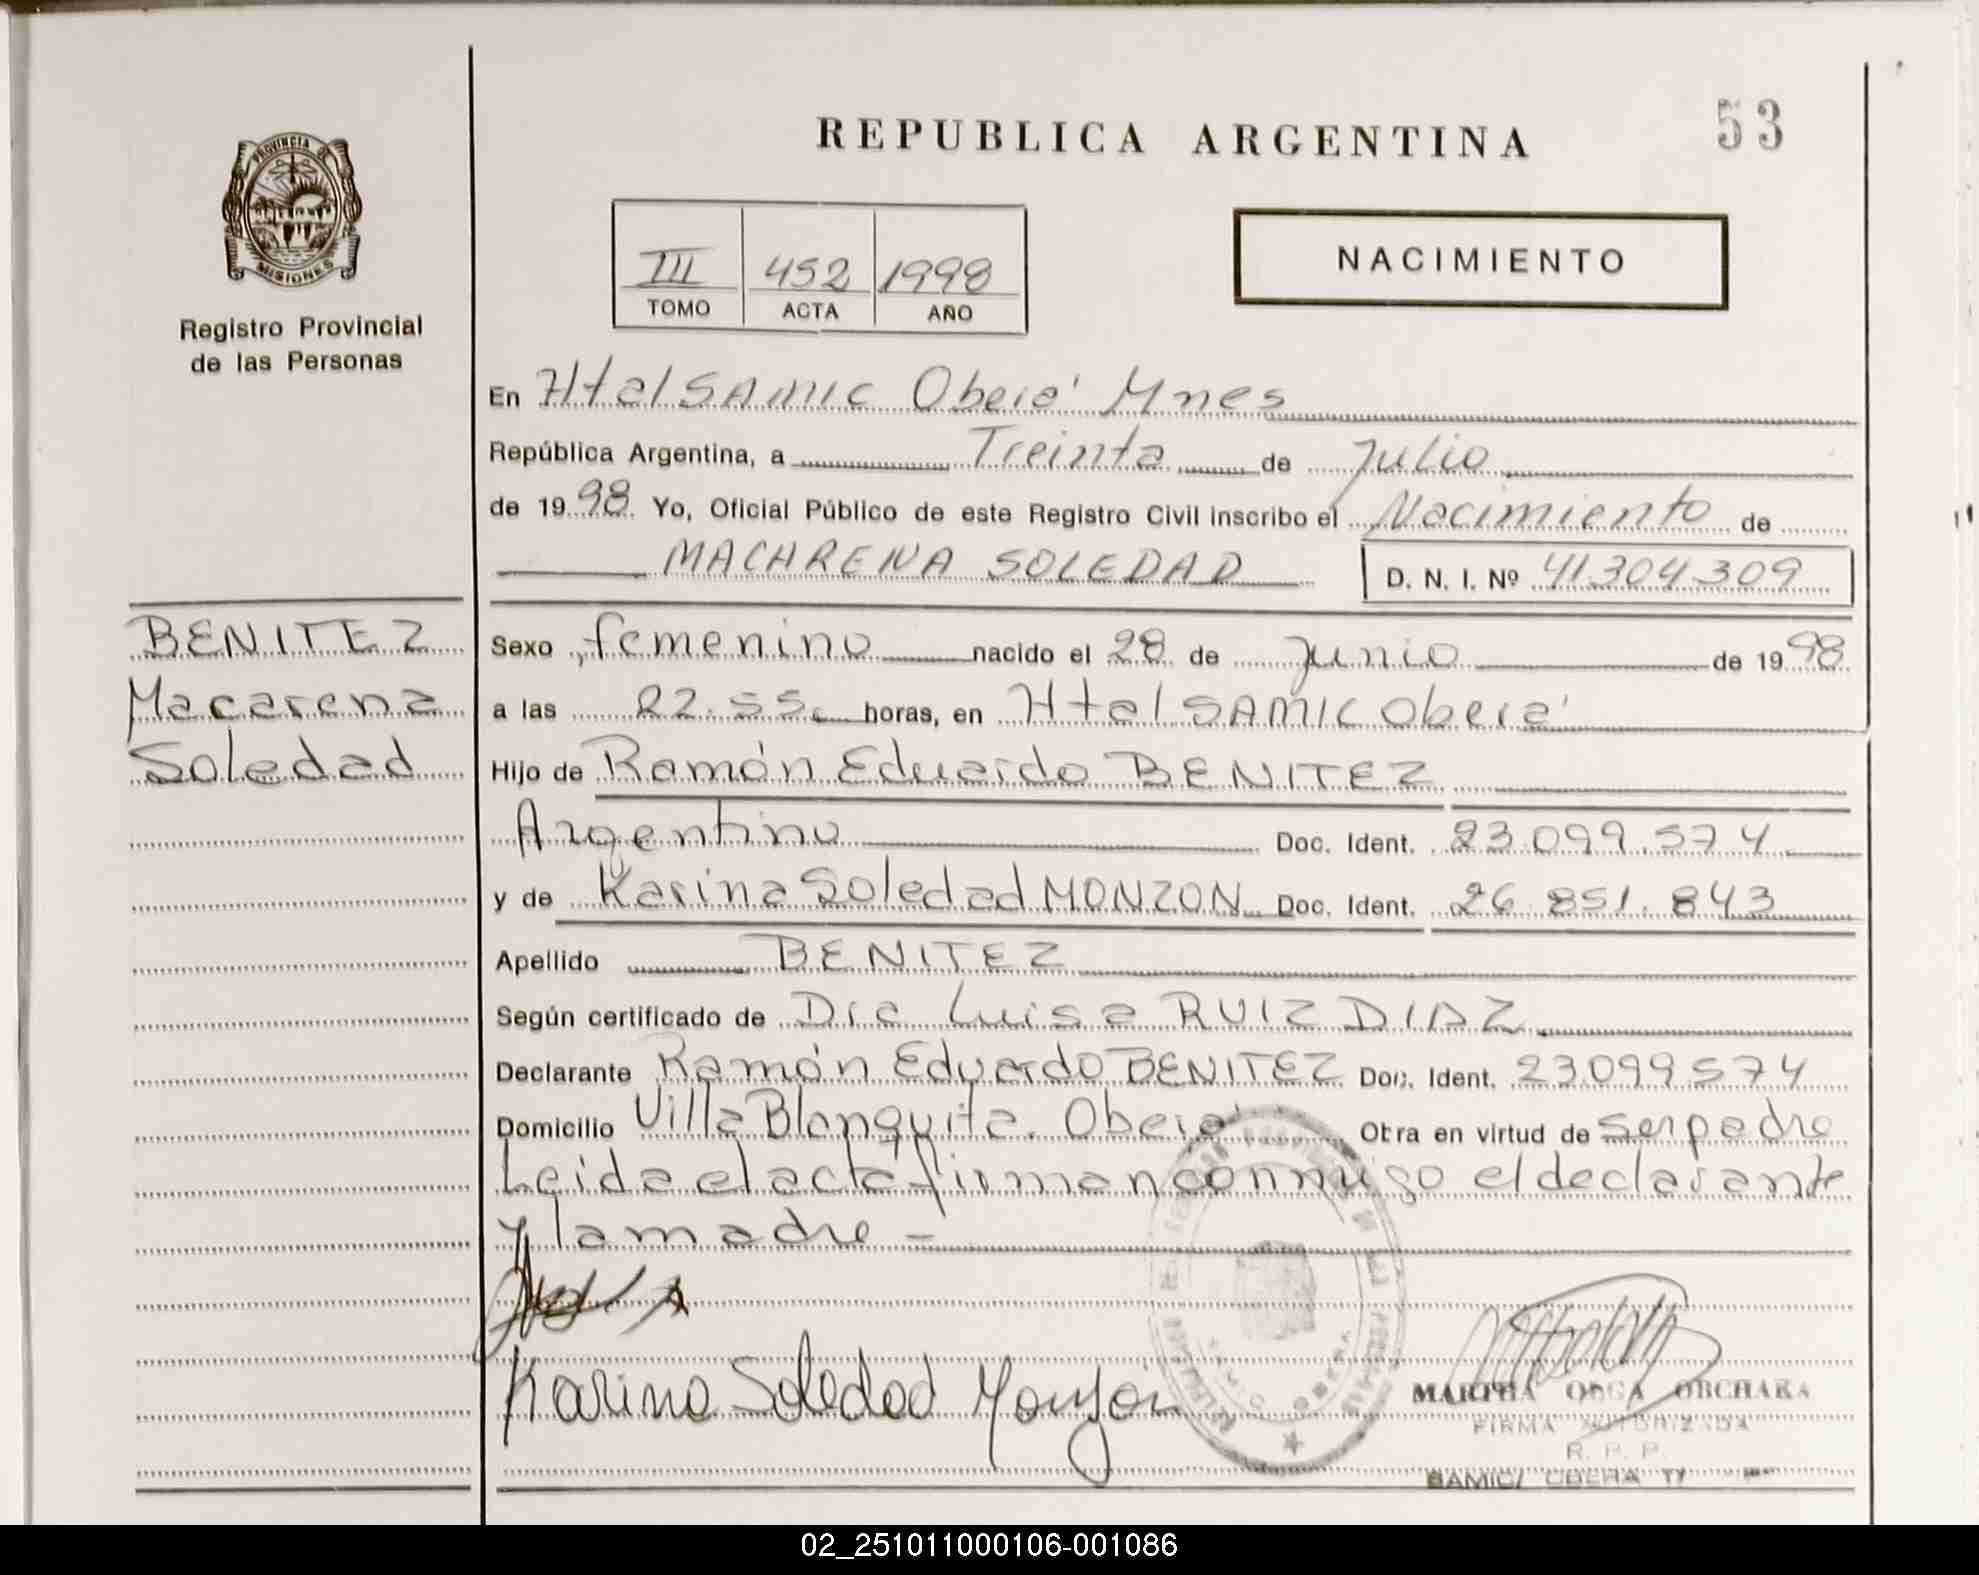 REPUBLICA ARGENTINA
53
PROVINCIA DE
MISIONES
Registro Provincial
de las Personas
III 452 1998
TOMO ACTA AÑO
NACIMIENTO
En Htal SAMIC Oberá Mnes
República Argentina, a Treinta de Julio
de 1998 Yo, Oficial Público de este Registro Civil inscribo el Nacimiento de
MACARENA SOLEDAD D. N. I. Nº 41304309
BENITEZ
Macarena
Soledad
Sexo femenino nacido el 28 de Junio de 1998
a las 22.55 horas, en Htal SAMIC Oberá
Hijo de Ramón Eduardo BENITEZ
Argentino Doc. Ident. 23.099.574
y de Karina Soledad MONZON Doc. Ident. 26.851.843
Apellido BENITEZ
Según certificado de Dra Luisa RUIZ DIAZ
Declarante Ramón Eduardo BENITEZ Doc. Ident. 23.099574
Domicilio Villa Blanquita. Oberá Obra en virtud de ser padre
Leida el acta firman conmigo el declarante
y la madre -
Karina Soledad Monzón
MARTHA OLGA OBCHAKA
FIRMA AUTORIZADA
R. P. P.
SAMIC/ OBERA
02_251011000106-001086